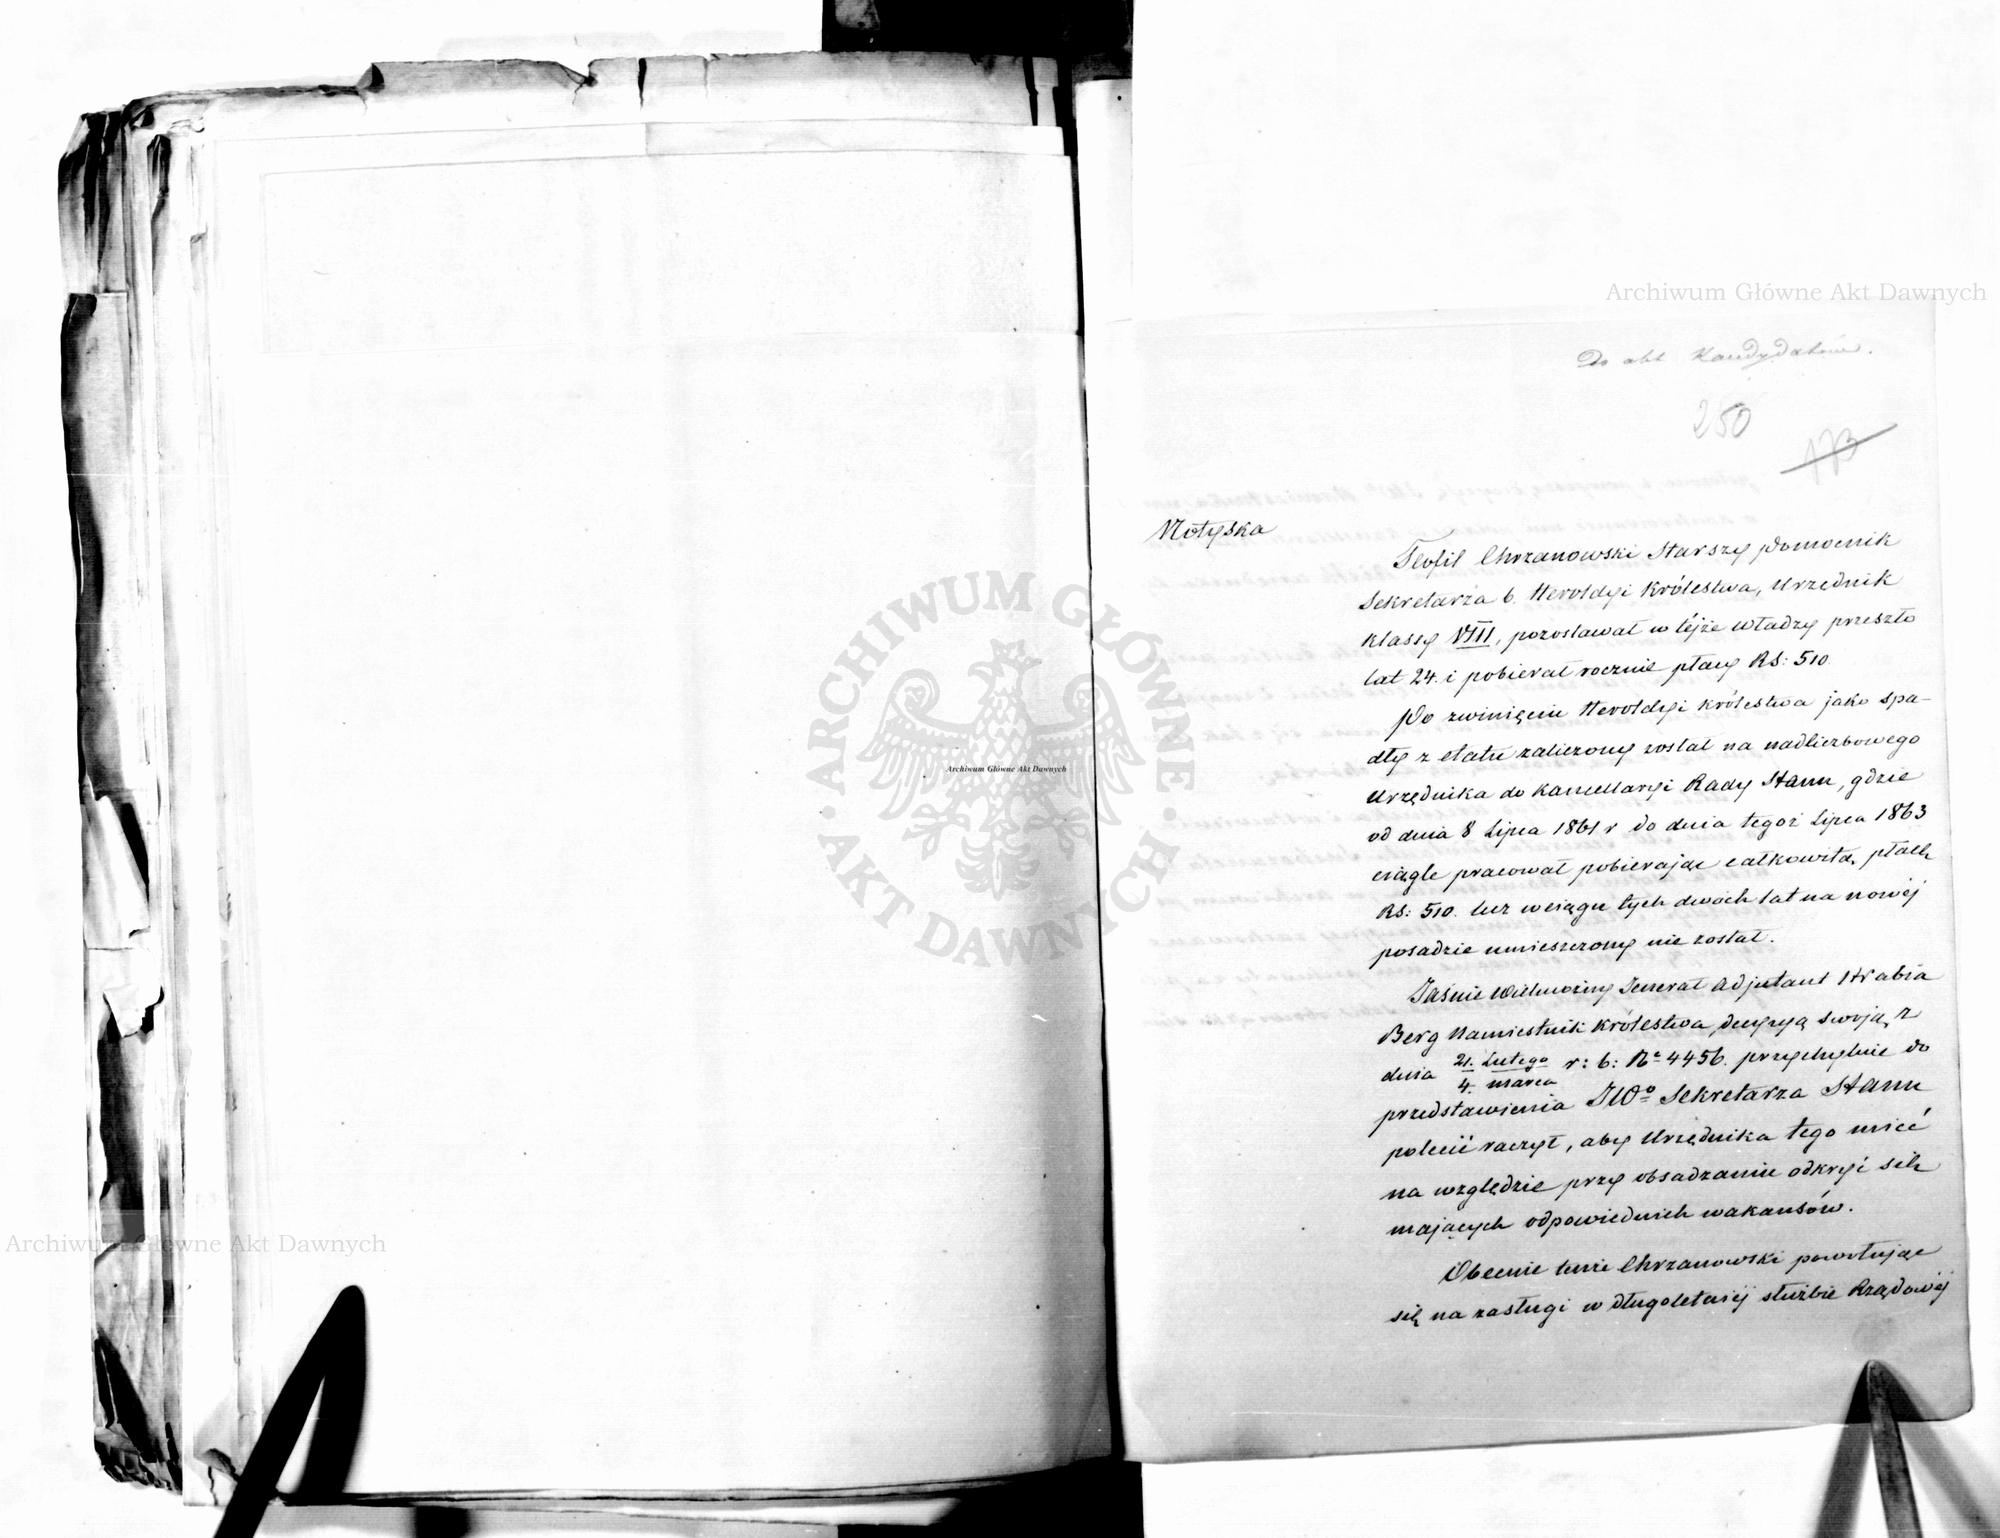 Archiwum Główne Akt Dawnych
Do akt Kandydatów.
250
173
Notyska
Teofil Chrzanowski Starszy Pomocnik
Sekretarza b. Heroldyi Królestwa, Urzędnik
klassy VIII, pozostawał w téjże władzy przeszło
lat 24. i pobierał rocznie płacy RS: 510.
Po zwinięciu Heroldyi Królestwa jako spa-
dły z etatu zaliczony został na nadliczbowego
Urzędnika do Kancellaryi Rady Stanu, gdzie
od dnia 8 Lipca 1861 r do dnia tegoż Lipca 1863
ciągle pracował pobierając całkowitą płacę
RS: 510. lecz wciągu tych dwóch lat na nowéj
posadzie umieszczony nie został.
Jaśnie Wielmożny Jenerał Adjutant Hrabia
Berg Namiestnik Królestwa, decyzyą swoją z
dnia 21. Lutego / 4. Marca r: b: No 4456. przychylnie do
przedstawienia JWo Sekretarza Stanu
polecić raczył, aby Urzędnika tego mieć
na względzie przy obsadzaniu odkryć się
mających odpowiednich wakansów.
Obecnie tenże Chrzanowski powołując
się na zasługi w długoletniéj służbie Rządowéj
ARCHIWUM GŁÓWNE
AKT DAWNYCH
Archiwum Główne Akt Dawnych
Archiwum Główne Akt Dawnych